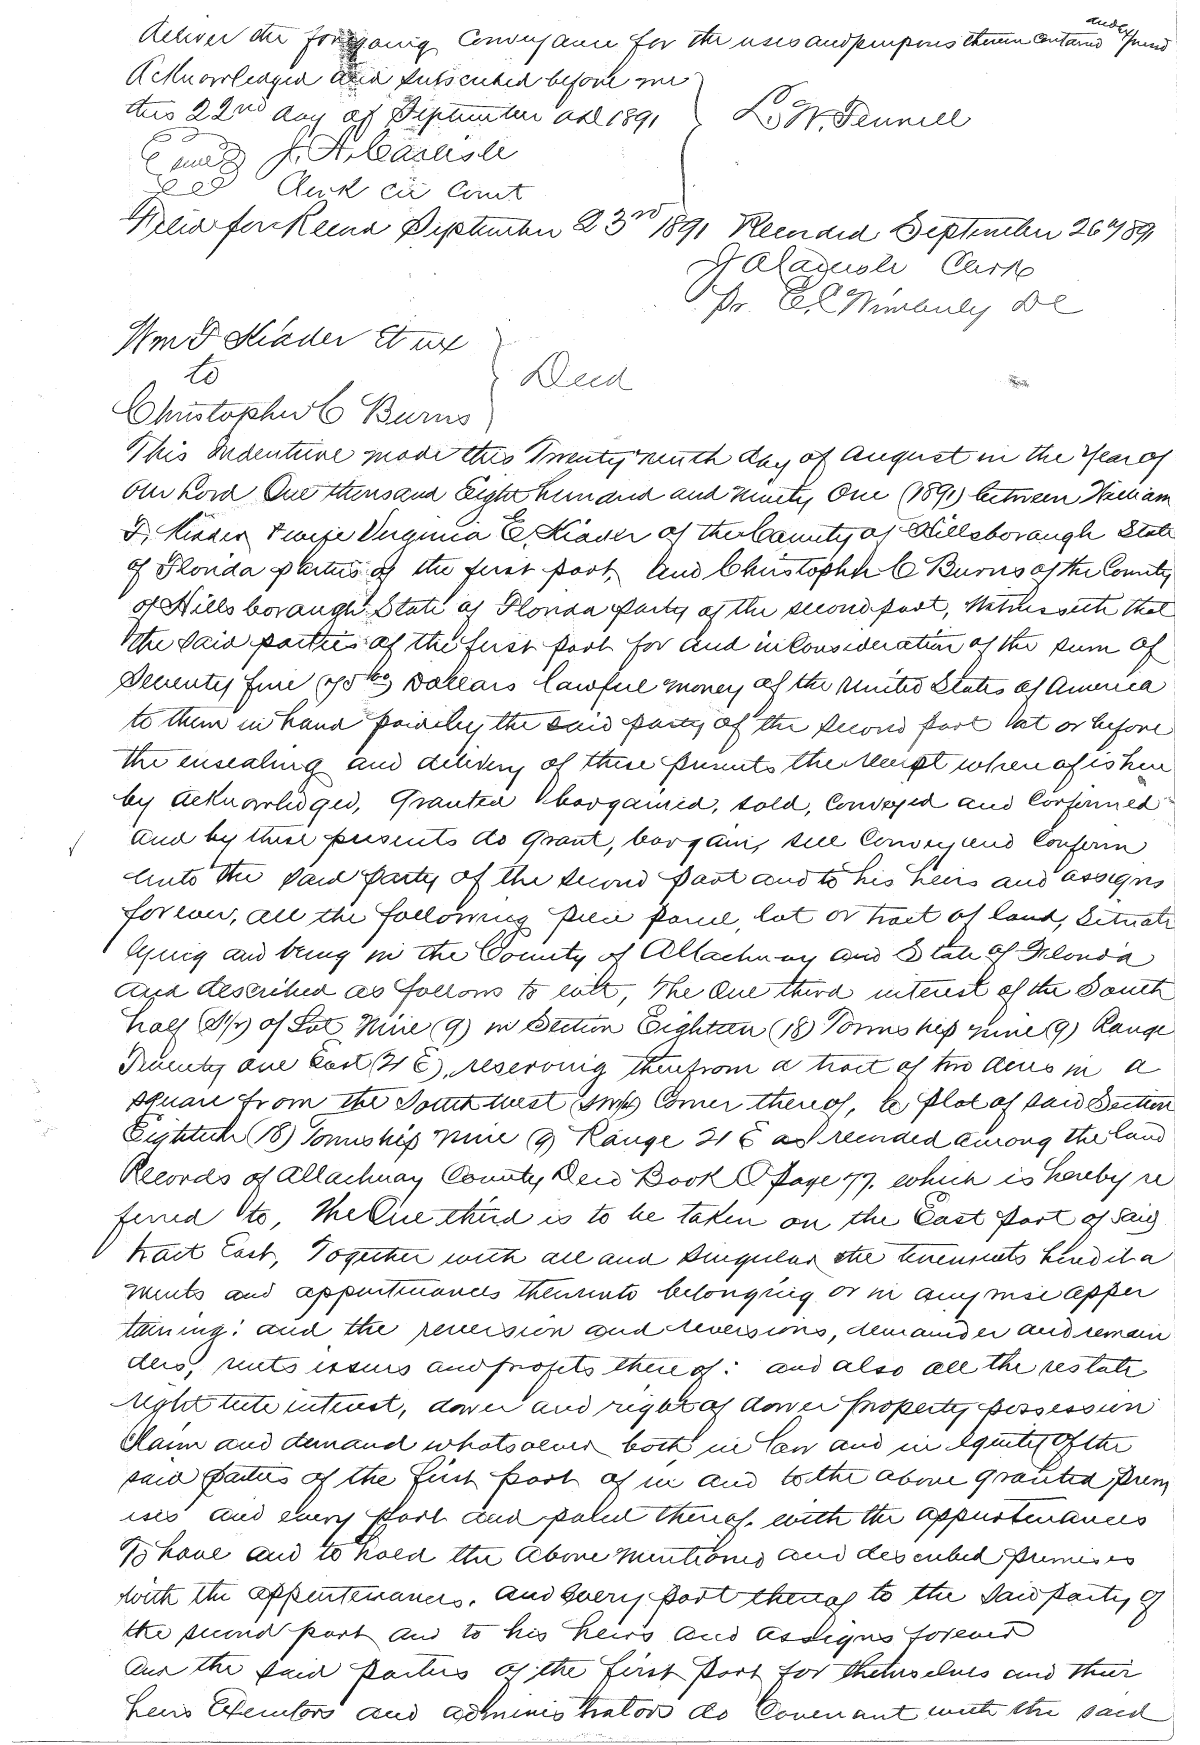 deliver the foregoing Conveyance for the uses and purposes therein contained and expressed
Acknowledged and subscribed before me
this 22nd day of September AD 1891 L. W. Fennell
J. A. Carlisle
Clerk Cir Court
Filed for Record September 23rd 1891 Recorded September 26th 1891
J A Carlisle Clerk
Pr. E. C. Wimberly DC
Wm F Kiader Et ux
to Deed
Christopher C Burns
This Indenture made this Twenty ninth day of August in the Year of
our Lord One thousand Eight hundred and ninety One (1891) between William
F. Kiader & wife Virginia E. Kiader of the County of Hillsborough State
of Florida parties of the first part, and Christopher C Burns of the County
of Hillsborough State of Florida party of the second part, Witnesseth that
the said parties of the first part for and in Consideration of the sum of
Seventy five Dollars lawful money of the United States of America
to them in hand paid by the said party of the second part at or before
the ensealing and delivery of these presents the receipt whereof is here
by Acknowledged, Granted bargained, sold, Conveyed and Confirmed
and by these presents do Grant, bargain, sell Convey and Confirm
unto the said party of the second part and to his heirs and assigns
forever, all the following piece parcel, lot or tract of land, Situate
lying and being in the County of Allachuay and State of Florida
and described as follows to wit, The One third interest of the South
half (S½) of Lot Nine (9) in Section Eighteen (18) Township nine (9) Range
Twenty one East (21 E), reserving therefrom a tract of two Acres in a
square from the Southwest (SW¼) Corner thereof, a plot of said Section
Eighteen (18) Township Nine (9) Range 21 E as recorded among the land
Records of Allachuay County Deed Book O page 77. which is hereby re
ferred to, The One third is to be taken on the East part of Said
tract East, Together with all and singular the tenements heredita
ments and appurtenances thereunto belonging or in anywise apper
taining: and the reversion and reversions, remainder and remain
ders, rents issues and profits thereof: and also all the estate
right title interest, dower and right of dower property possession
Claim and demand whatsoever both in law and in Equity of the
said parties of the first part of in and to the above granted prem
ises and every part and parcel thereof. with the appurtenances
To have and to hold the above mentioned and described premises
with the appurtenances. and every part thereof to the said party of
the second part and to his heirs and assigns forever
And the said parties of the first part for themselves and their
heirs Executors and administrators do Covenant with the said